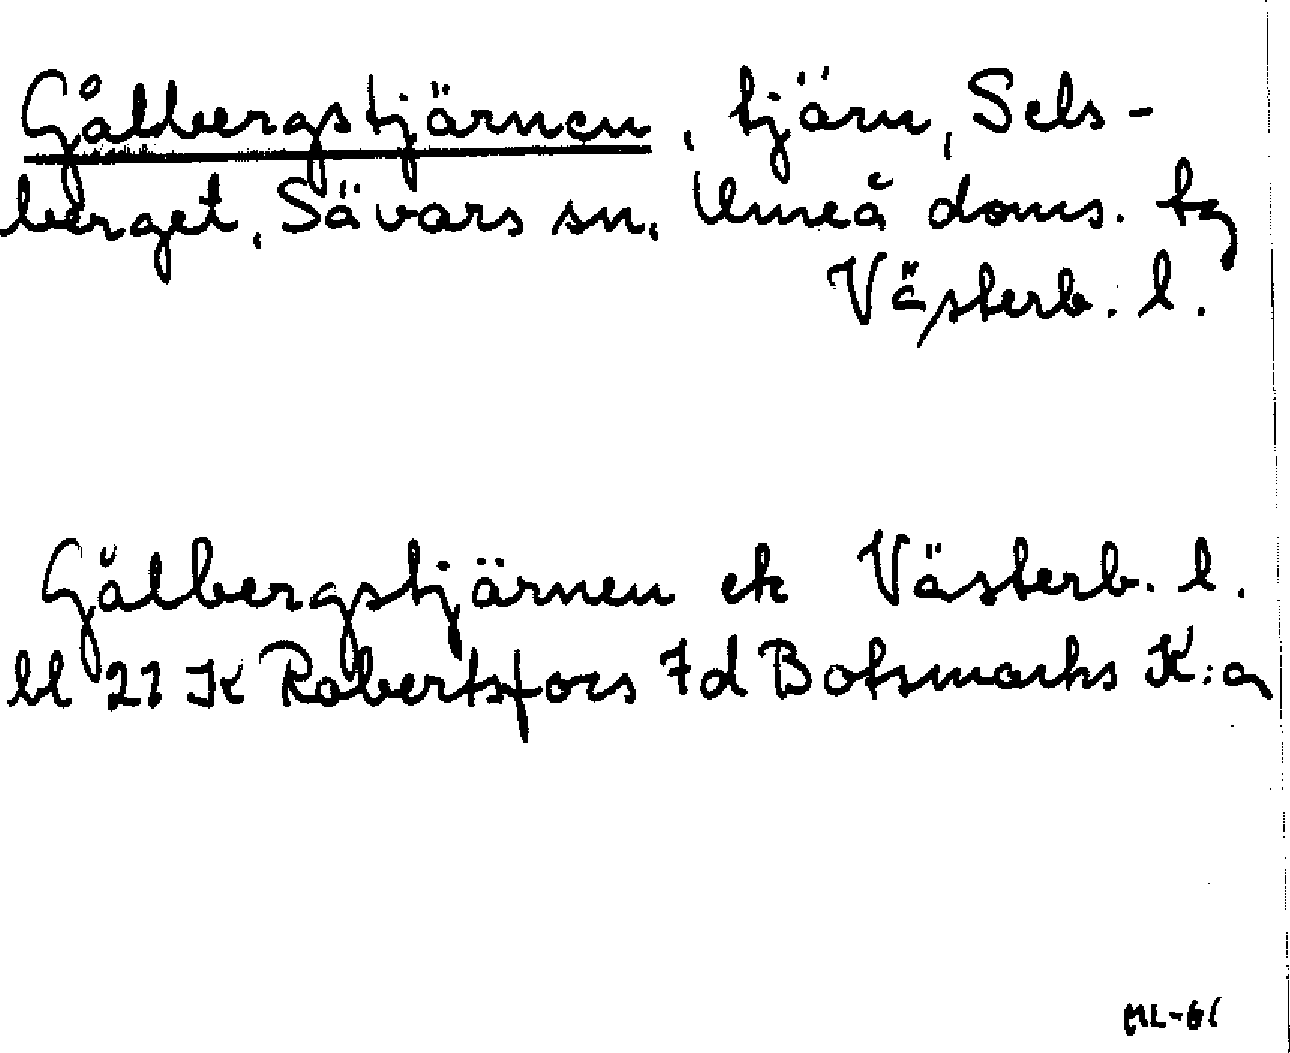 Gålbergstjärnen, tjärn, Sels-
berget, Sävars sn, Umeå doms. tg
Västerb. l.
Gålbergstjärnen ek Västerb. l.
bl 21 K Robertsfors 7d Botsmarks K:a
ML-61